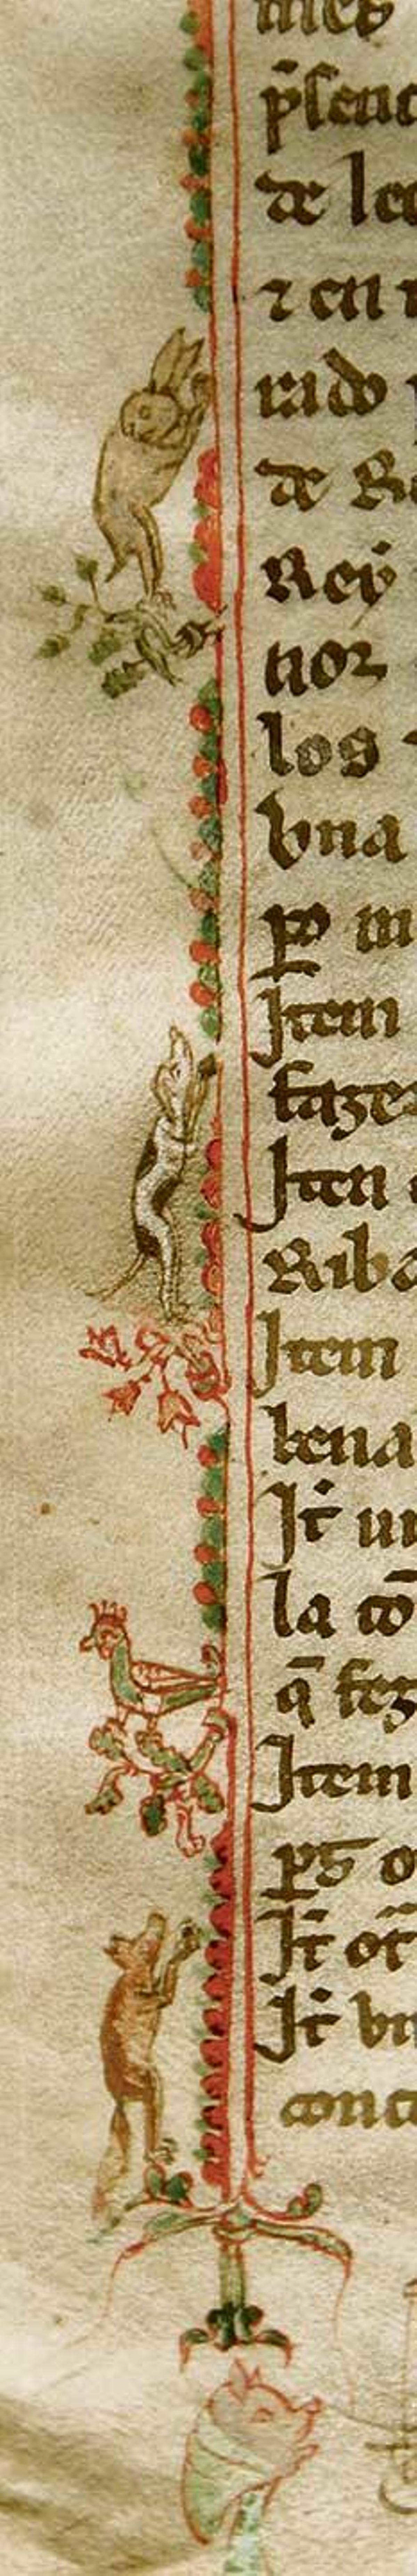 mes
p̄senc
de lec
⁊ en
rado
de Ri
Rey
nor
los
vna
ꝑo m
Item
faze
Iten
Riba
Item
kena
It̄ vn
la cō
q̄ fez
Item
It̄ ot̄
It̄ vn
conc